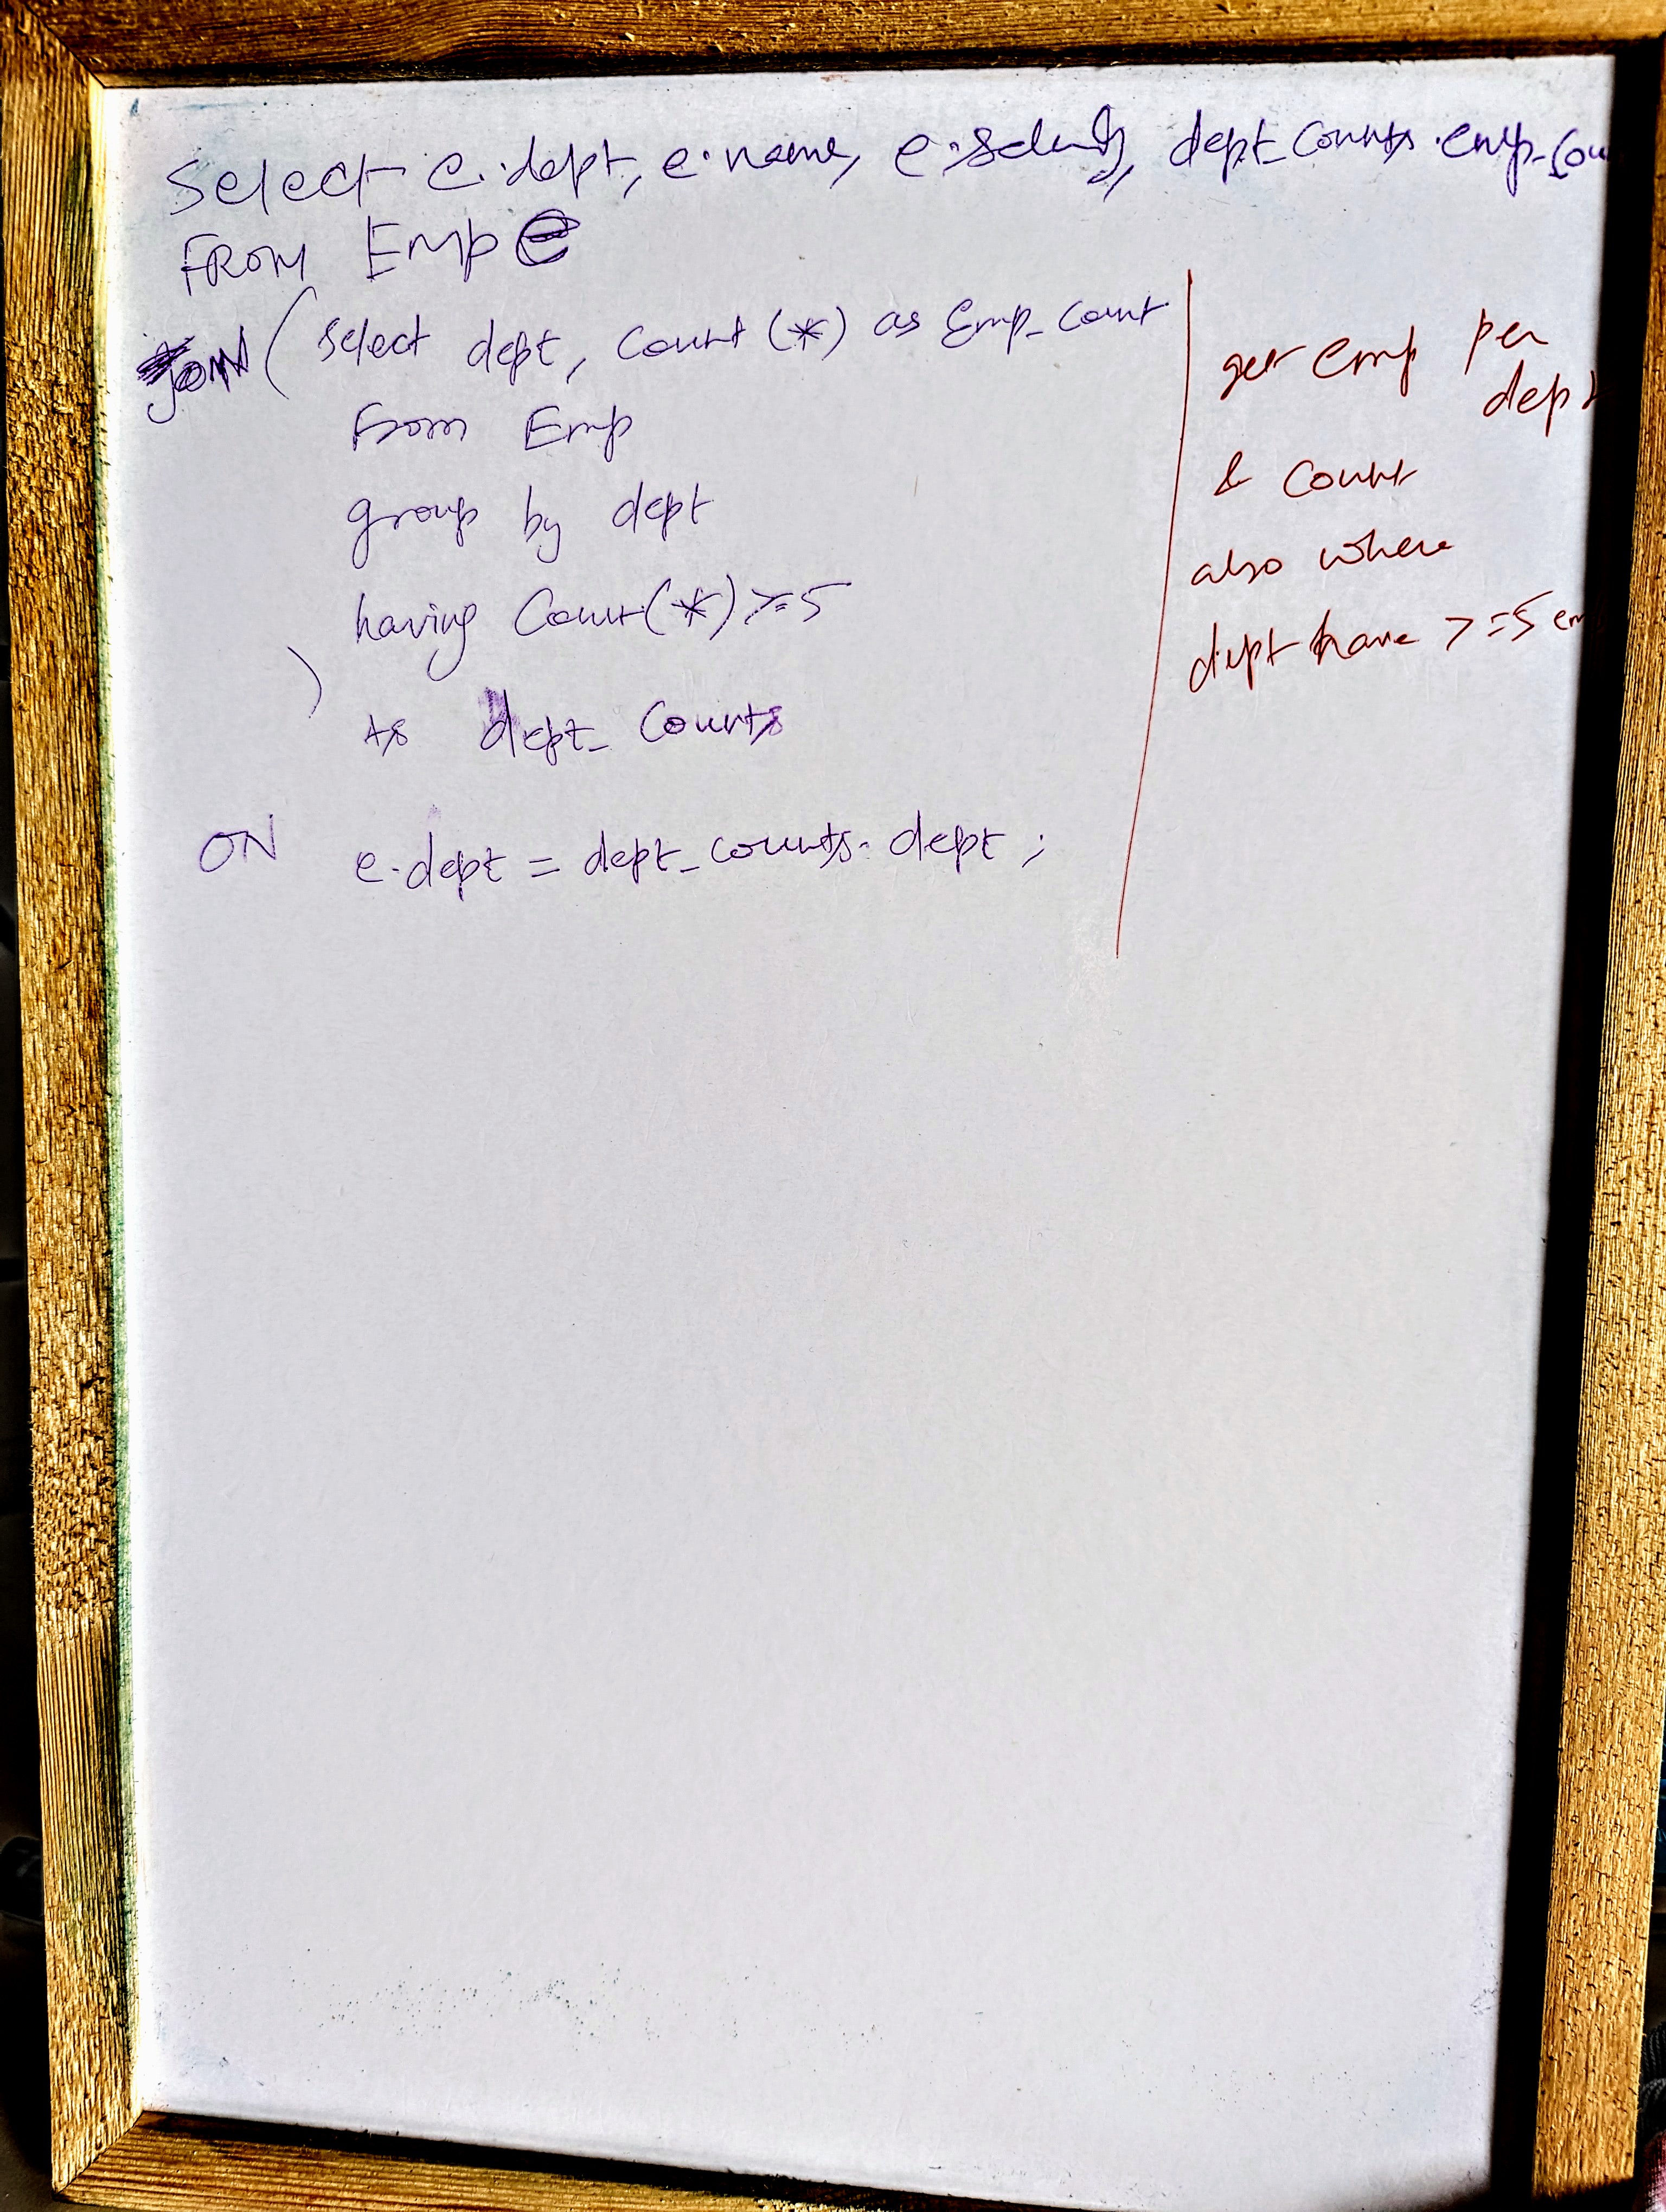 Select e.dept, e.name, e.salary, dept_counts.emp_cou
FROM Emp e
JOIN ( Select dept, Count (*) as Emp_Count
from Emp
group by dept
having Count(*) >=5
)
As dept_Counts
ON e.dept = dept_counts.dept ;
get emp per
dept
& count
also where
dept have >=5 em